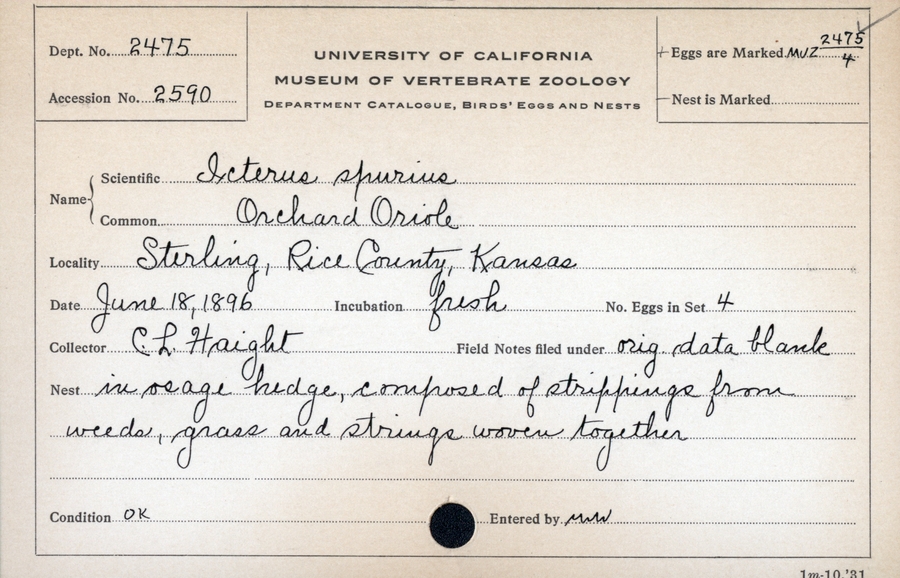 Dept. No. 2475
Accession No. 2590
UNIVERSITY OF CALIFORNIA
MUSEUM OF VERTEBRATE ZOOLOGY
DEPARTMENT CATALOGUE, BIRDS' EGGS AND NESTS
Eggs are Marked MVZ 2475/4
Nest is Marked
Name
Scientific Icterus spurius
Common Orchard Oriole
Locality Sterling, Rice County, Kansas
Date June 18, 1896 Incubation fresh No. Eggs in Set 4
Collector C. L. Haight Field Notes filed under orig. data blank
Nest in osage hedge, composed of strippings from
weeds, grass and strings woven together
Condition OK Entered by
1m-10,'31